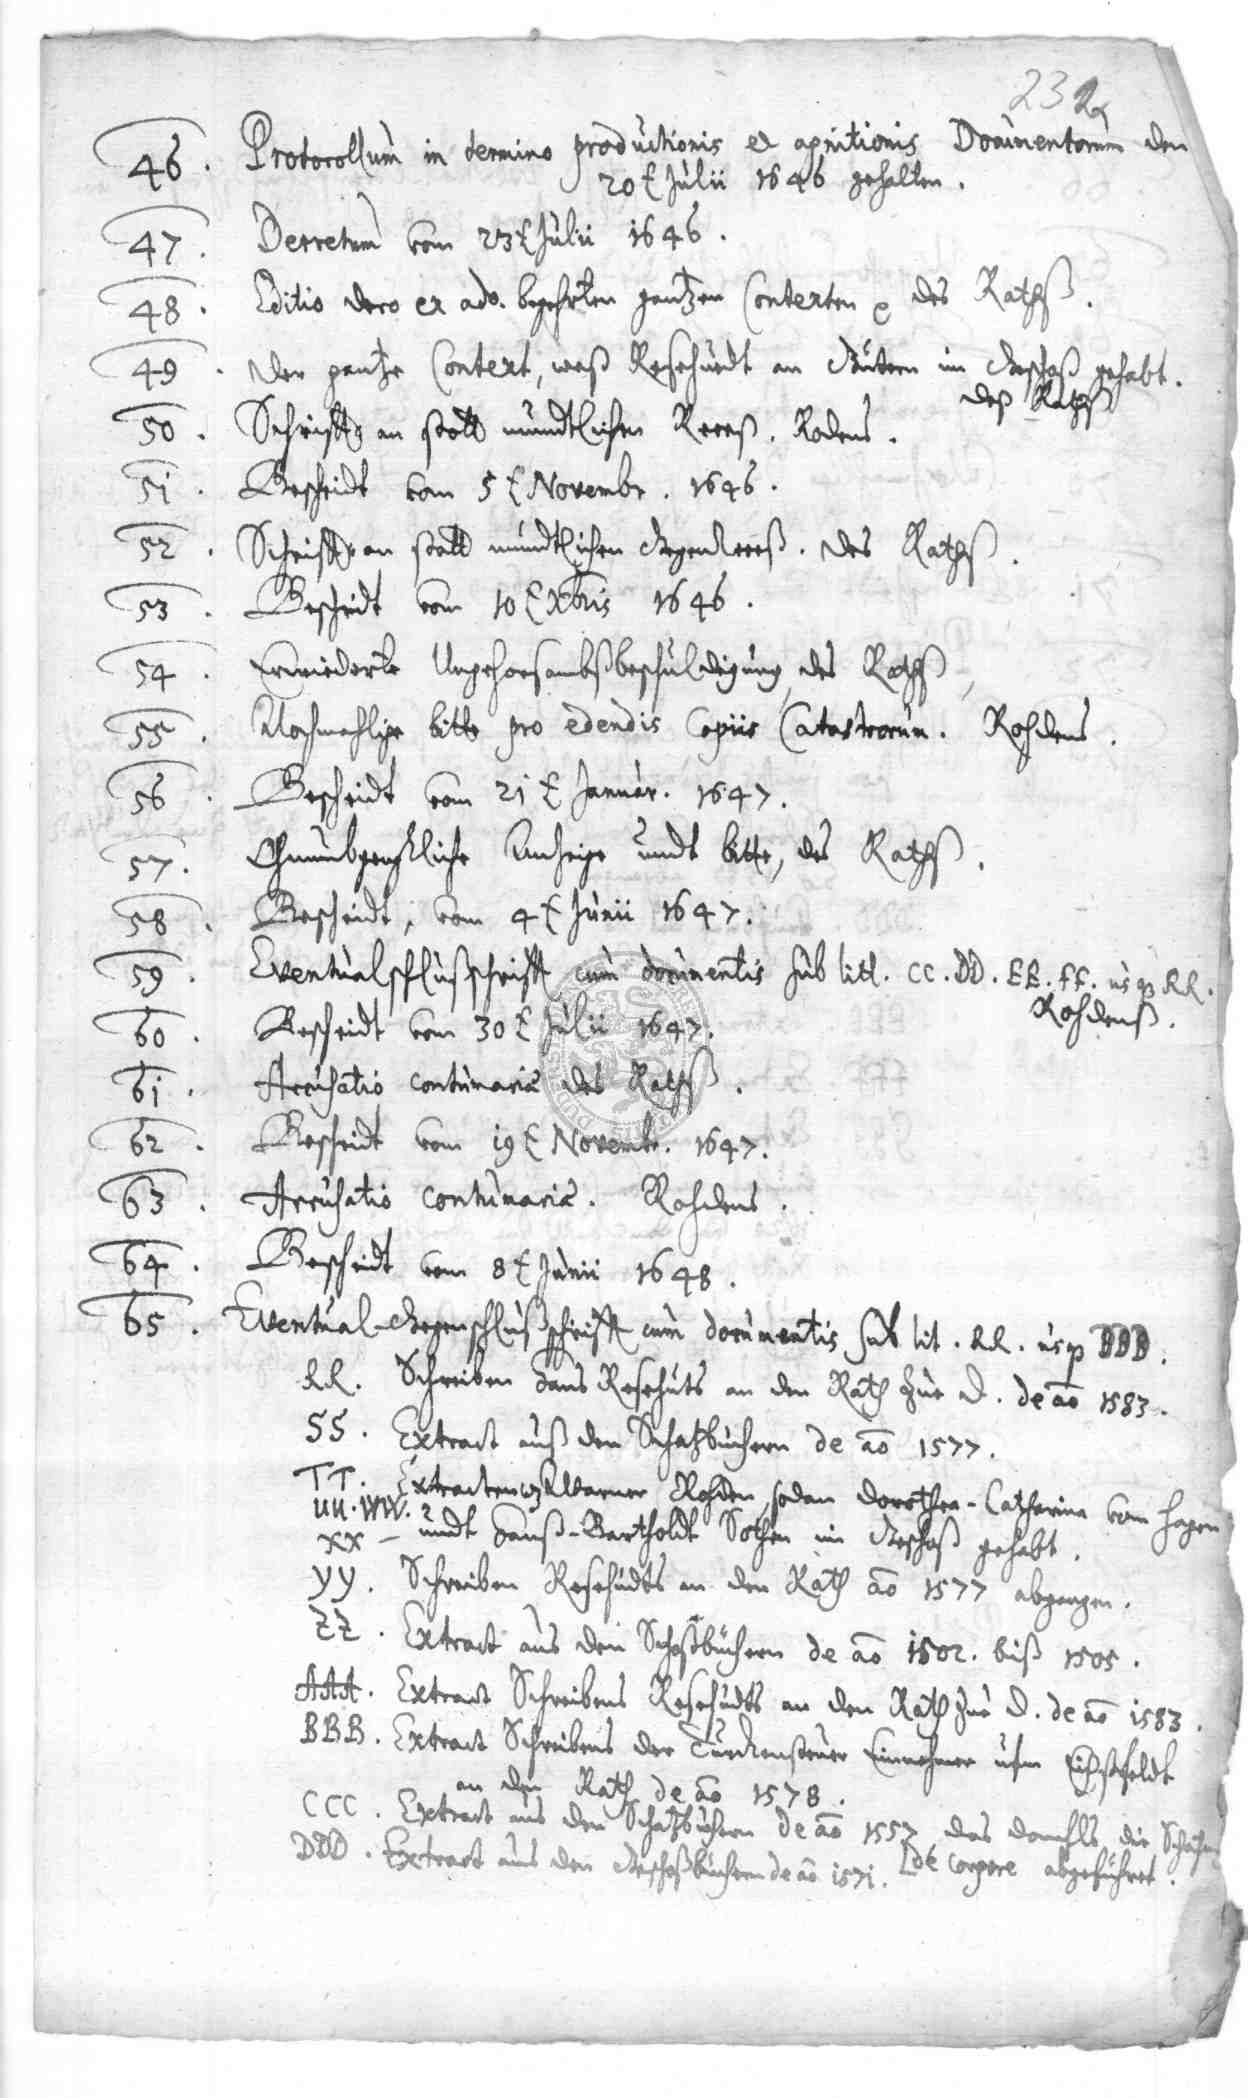 232
46. Protocollum in termino productionis et agnitionis Documentorum den
20t Julii 1646 gehalten.
47. Decretum vom 23t Julii 1646.
48. Editio dero ex adv. begehrten gantzen Contexten des Rathß.
49. Der gantze Context, waß Resehuedt an Gütern im Geschoß gehabt.
deß Rathß
50. Schrifft an statt mündtlichen Receß. Rodens.
51. Bescheidt vom 5t Novembr. 1646.
52. Schrifft an statt mündtlichen GegenReceß. des Rathß.
53. Bescheidt vom 10t Xbris 1646.
54. Erwiederte Ungehorsambßbeschuldigung des Rathß,
55. Nochmahlige bitte pro edendis Copiis Catastrorum. Rohdens.
56. Bescheidt vom 21t Januar. 1647.
57. Ohnumbgengkliche Anzeige undt bitte, des Rathß.
58. Bescheidt, vom 4t Junii 1647.
59. Eventualschlußschrifft cum documentis sub litt. CC. DD. EE. FF. usq RR.
Rohdenß.
60. Bescheidt vom 30t Julii 1647.
61. Accusatio contumaciæ des Rathß.
62. Bescheidt vom 19t Novembr. 1647.
63. Accusatio contumaciæ. Rohdens.
64. Bescheidt vom 8t Junii 1648.
65. Eventual-Gegenschlußschrifft cum documentis sub lit. RR. usq DDD.
RR. Schreiben Hans Resehuts an den Rath zue D. de ao 1583.
SS. Extract auß den Schatzbüchern de ao 1577.
TT. Extracten Warner Rohden, sodan Dorothea-Catharina vom Hagen
UU. WW. undt Hanß-Bartholdt Sothen im Geschoß gehabt.
XX –
YY. Schreiben Resehudts an den Rath ao 1577 abgangen.
ZZ. Extract aus den Schoßbüchern de ao 1502. biß 1505.
AAA. Extract Schreibens Resehudts an den Rath zue D. de ao 1583.
BBB. Extract Schreibens der Türckensteuer Einnehmer ufm Eichßfeldt
an den Rath de ao 1578.
CCC. Extract aus den Schatzbüchern de ao 1557, das domahls die
DDD. Extract aus den Geschoßbüchern de ao 1571. [de corpore abgeführet.